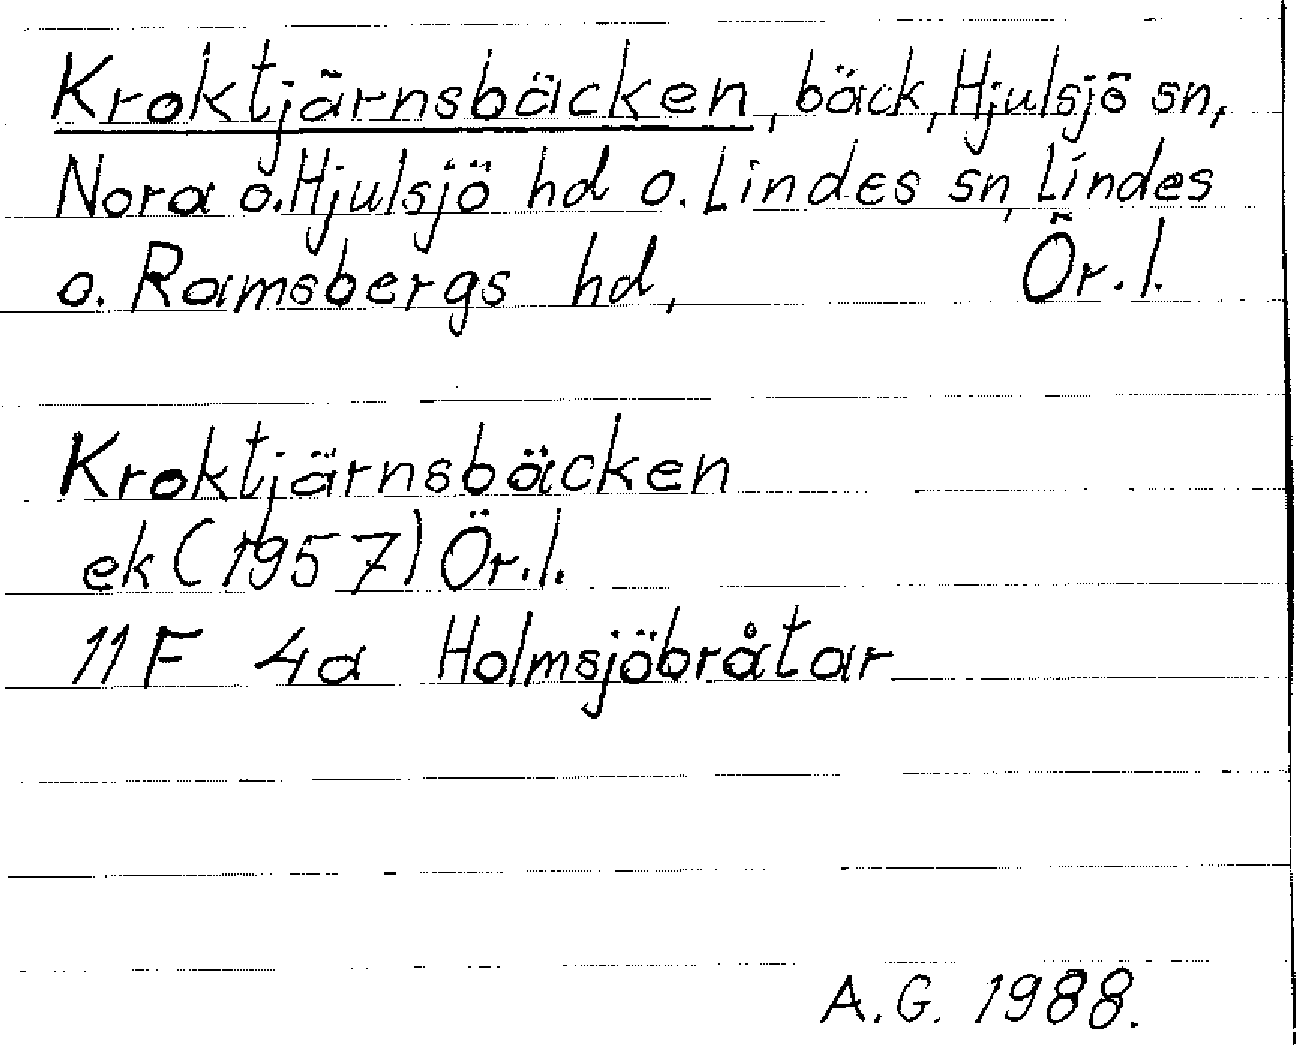 Kroktjärnsbäcken, bäck, Hjulsjö sn,
Nora o. Hjulsjö hd o. Lindes sn, Lindes
o. Ramsbergs hd, Ör. l.
Kroktjärnsbäcken
ek (1957) Ör. l.
11 F 4a Holmsjöbråtar
A. G. 1988.